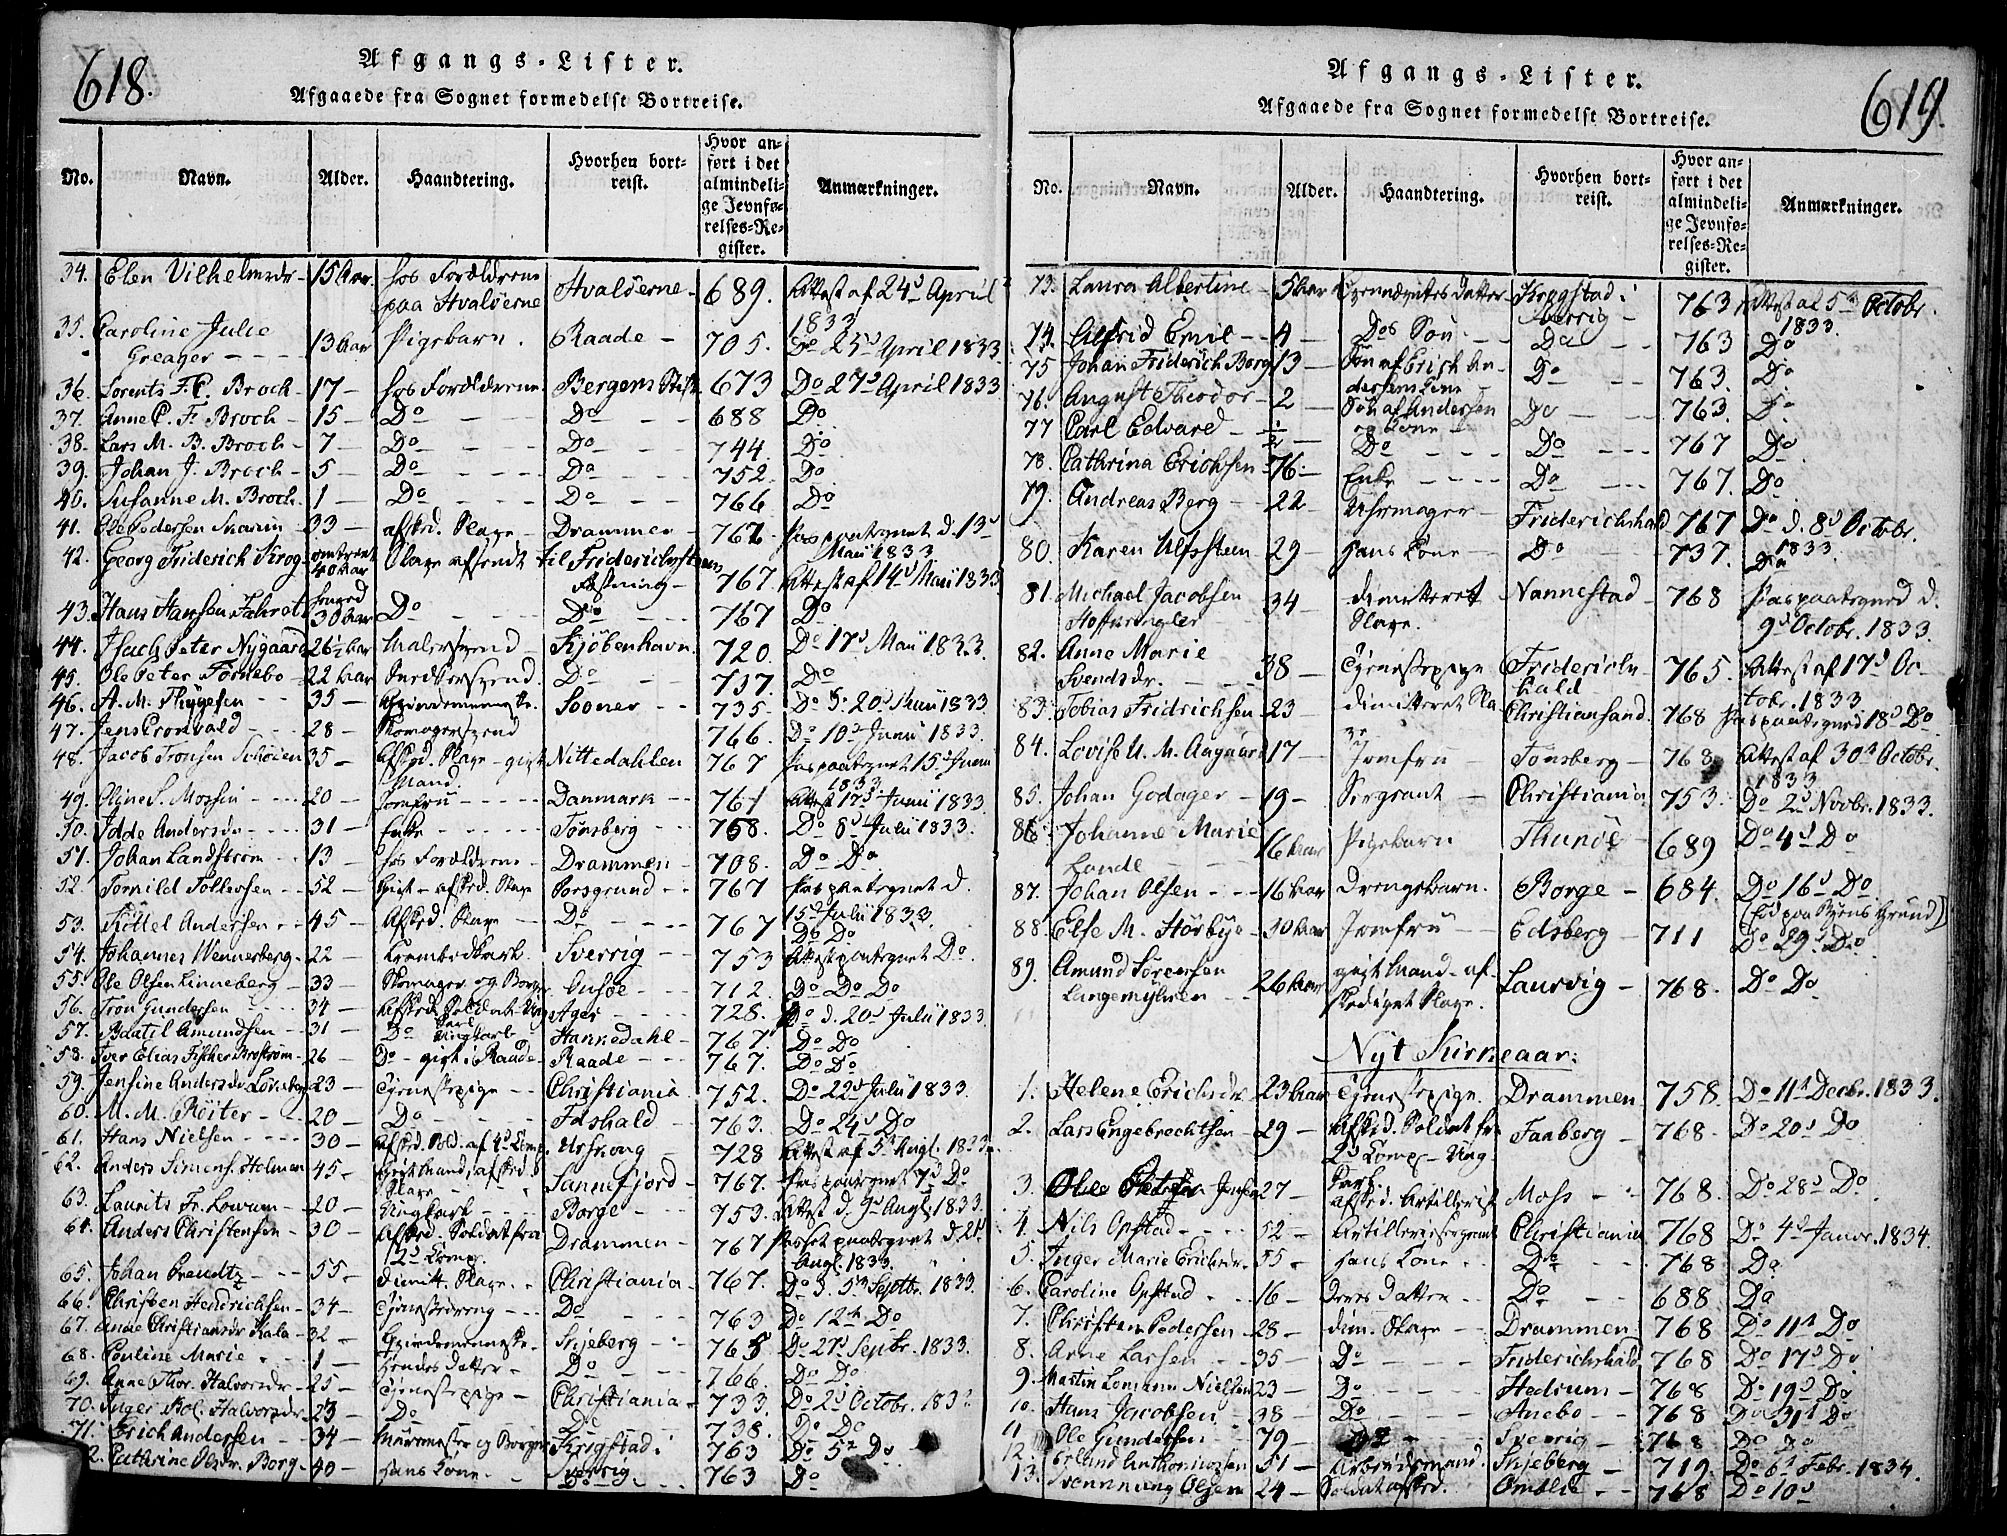 618.
Afgangs-Lister.
Afgaaede fra Sognet formedelst Bortreise.
No. Navn. Alder. Haandtering. Hvorhen bortreist. Hvor anført i det almindelige Jevnførelses-Register. Anmærkninger.
34. Elen Vilhelmsdr 15 Aar hos Forældrene paa Hvaløerne Hvaløerne 689. Attest af 24d April 1833
35. Caroline Julie Greager 13 Aar Pigebarn. Raade 705. Do 25d April 1833
36. Lorents F. C. Broch 17 hos Forældrene Bergens Stift 673 Do 27d April 1833
37. Anne C. F. Broch 15 Do Do 688 Do
38. Lars M. B. Broch 7 Do Do 744. Do
39. Johan J. Broch 5 Do Do 752. Do
40. Susanne M. Broch 1 Do Do 766 Do
41. Ole Pedersen 33 afsked. Slave Drammen 767 Pas paategnet d. 13d Maii 1833
42. Georg Friderich Krog omtrent 40 Aar Slave afsendt til Friderichsteens Fæstning 767. Attest af 14d Maii 1833
43. Hans Hansen 30 Aar Do Do 767 Do
44. Isach Peter Nygaard 26½ Aar Malersvend Kjøbenhavn 720. Do 17d Maii 1833.
45. Ole Peter Tørnebo 22 Aar Snedkersvend. Do 737. Do
46. A. M. Thygesen 35 Qvindemenneske Sooner 735. Do d. 20d Maii 1833
47. Jens Cronvald 28 Skomagersvend 766. Do 10d Junii 1833.
48. Jacob Tronsen 35 Afsked. Slave gift Mand. Nittedahlen 767 Pas paategnet 15d Junii 1833
49. Oline S. Mossin 20 Jomfru Danmark 761 Attest 17d Junii 1833
50. Idde Andersdr 31 Enke Tønsberg 768. Do 8d Julii 1833.
51. Johan Landstrøm 13 hos Forældrene Drammen 708. Do Do
52. Tomild Tollefsen 52 Gift afsked. Slave Porsgrund 767 Pas paategnet d. 15d Julii 1833
53. Kittel Andersen 45 Afsked. Slave Do 767 Do Do
54. Johannes Wennerberg 22 Sverrig 753 Attest paategnet Do.
55. Ole Olsen Linneberg 33 Skomager og Borger Onsøe 712. Do Do Do
56. Tron Gundersen 34 Afsked. Soldat Ungkarl Ager 728. Do d. 20d Julii 1833.
57. Amundsen 31 Do Ungkarl Hannedahl 767 Do Do
58. Iver Elias Fischer Brostrøm 26 Do gift i Raade Raade 767. Do Do
59. Jensine Andersdr 23 Tjenestepige Christiania 752. Do 22d Julii 1833
60. M. M. Røiter 20 Do 763. Do 24d Do
61. Hans Nielsen 30 Afsked. Sold. af 4d Comp. 728 Attest af 5d Augt. 1833
62. Anders Simens. Holman 45 Gift Mand, afsked. Slave Sannefjord 767. Pas paategnet 7d Do
63. Laurits Fr. 20 Ungkarl Borge 753. Attest d. 9d Augt. 1833
64. Anders Christensen 30 Afsked. Soldat fra 12d Comp. Drammen 767 Passet paategnet d. 21d Augt. 1833.
65. Johan 55 dimitt. Slave Christiania 767. Do d. 5d Septbr. 1833.
66. Christen Hendrichsen 34 Tjenestedreng Do 763 Do 12d Do
67. Anne Christiansdr 32 Qvindemenneske Skjeberg 765 Do 27d Septbr. 1833.
68. Pouline Marie 1 hendes datter Do 766. Do Do
69. Anne Thor. Halvorsdr 25 Tjenestepige Christiania 733. Do 2d Octobr. 1833
70. Inger Bol. Halvorsdr 23 Do Do 738. Do Do
71. Erich Andersen 34 Muurmester og Borger Krogstad i Sverrig 763 Do 5d Do
2. Cathrine Borg 40 hans Kone Do 763 Do
619.
Afgangs-Lister.
Afgaaede fra Sognet formedelst Bortreise.
No. Navn. Alder. Haandtering. Hvorhen bortreist. Hvor anført i det almindelige Jevnførelses-Register. Anmærkninger.
73. Laura Albertine 5 Aar datter Krogstad i Sverrig 763 Attest af 5d Octobr. 1833.
74. Alfrid Emil 4 Dos Søn Do 763 Do
75 Johan Friderich Borg 13 Søn af Erich Andersens Kone Do 763. Do
76. August Theodor 2 Søn af Andersen og Kone Do 763. Do
77 Carl Edvard ½ Do Do 767 Do
78. Cathrina Erichsen 76 Enke Do 767. Do
79. Andreas Berg 22 Uhrmager Friderichshald 767 Do d. 8d Octobr. 1833.
80. Karen Ulfsteen 29 hans Kone Do 737. Do
81. Michael Jacobsen 34 dimitteret Slave. Nannestad 768 Pas paategned d. 9d Octobr. 1833.
82. Anne Marie Svendsdr. 38 Tjenestepige Friderichshald 765. Attest af 17d Octobr. 1833
83. Tobias Fridrichsen 23 dimitteret Slave Christiansand 768 Pas paategned 18d Do
84. Lovise U. M. Aagaard 17 Jomfru Tønsberg 768 Attest af 30d Octobr. 1833
85. Johan Godager 19 Sergeant Christiania 753. Do 2d Novbr. 1833.
86. Johanne Marie Lande 16 Aar Pigebarn Thunøe 689 Do 4d Do
87. Johan Olsen 16 Aar Drengebarn. Borge 684. Do 16d Do
88. Else M. Hørbye 30 Aar Jomfru Edsberg 711 (Fød paa Byens Grund) Do 29d Do
89. Amund Sørensen Langemyhren 26 Aar gift Mand afskediget Slave. Laurvig 768. Do Do
Nyt Kirkeaar.
1. Helene Erichsdr 23 Aar Tjenestepige. Drammen 758. Do 11d Decbr. 1833.
2. Lars Engebrechtsen 29 Afsked. Soldat fr 2d Comp. Ungkarl. Faaberg 768. Do 20d Do
3. Ole Jensen 27 afsked. Artillerist Moss 768. Do 28d Do
4. Nils Opstad 52 Artilleriesergeant Christiania 768 Do 4d Januar. 1834.
5. Inger Marie Erichsdr 55 hans Kone Do 768 Do
6. Caroline Opstad 16 deres datter Do 688 Do
7. Christen Pedersen 28 dim. Slave Drammen 768 Do 11d Do
8. Arne Larsen 35 Do Friderichshald 768 Do 17d Do
9. Martin Nielsen 23 Do Hedrum 768 Do 19d Do
10. Hans Jacobsen 38 Do Anebo 768 Do 31d Do
11 Ole Gundersen 79 Do Sverrig 768 Do Do
12. Erland 51 Arbeidsmand. Skjeberg 719. Do 6d Febr. 1834.
13. Svenning Olsen 24 Soldat afsked. Omblie 768 Do 10d